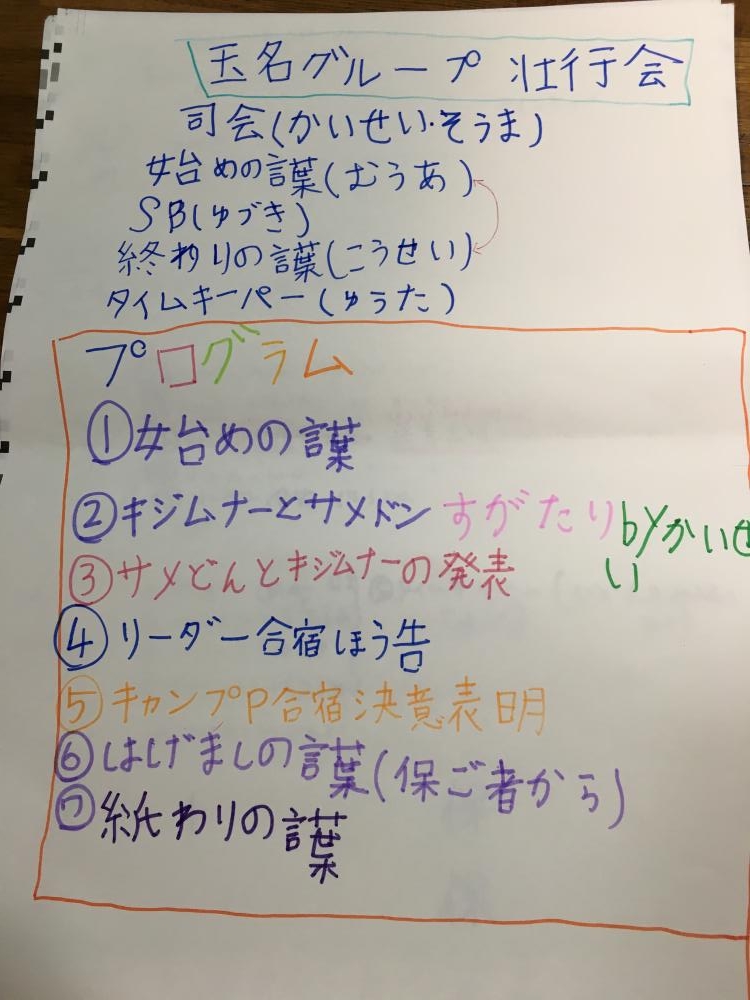 玉名グループ 壮行会
司会(かいせい・そうま)
始めの言葉(むうあ)
SB(ゆづき)
終わりの言葉(こうせい)
タイムキーパー(ゅうた)
プログラム
①始めの言葉
②キジムナーとサメドン すがたり byかいせい
③サメどんとキジムナーの発表
④リーダー合宿ほう告
⑤キャンプP合宿決意表明
⑥はげましの言葉(保ご者から)
⑦終わりの言葉